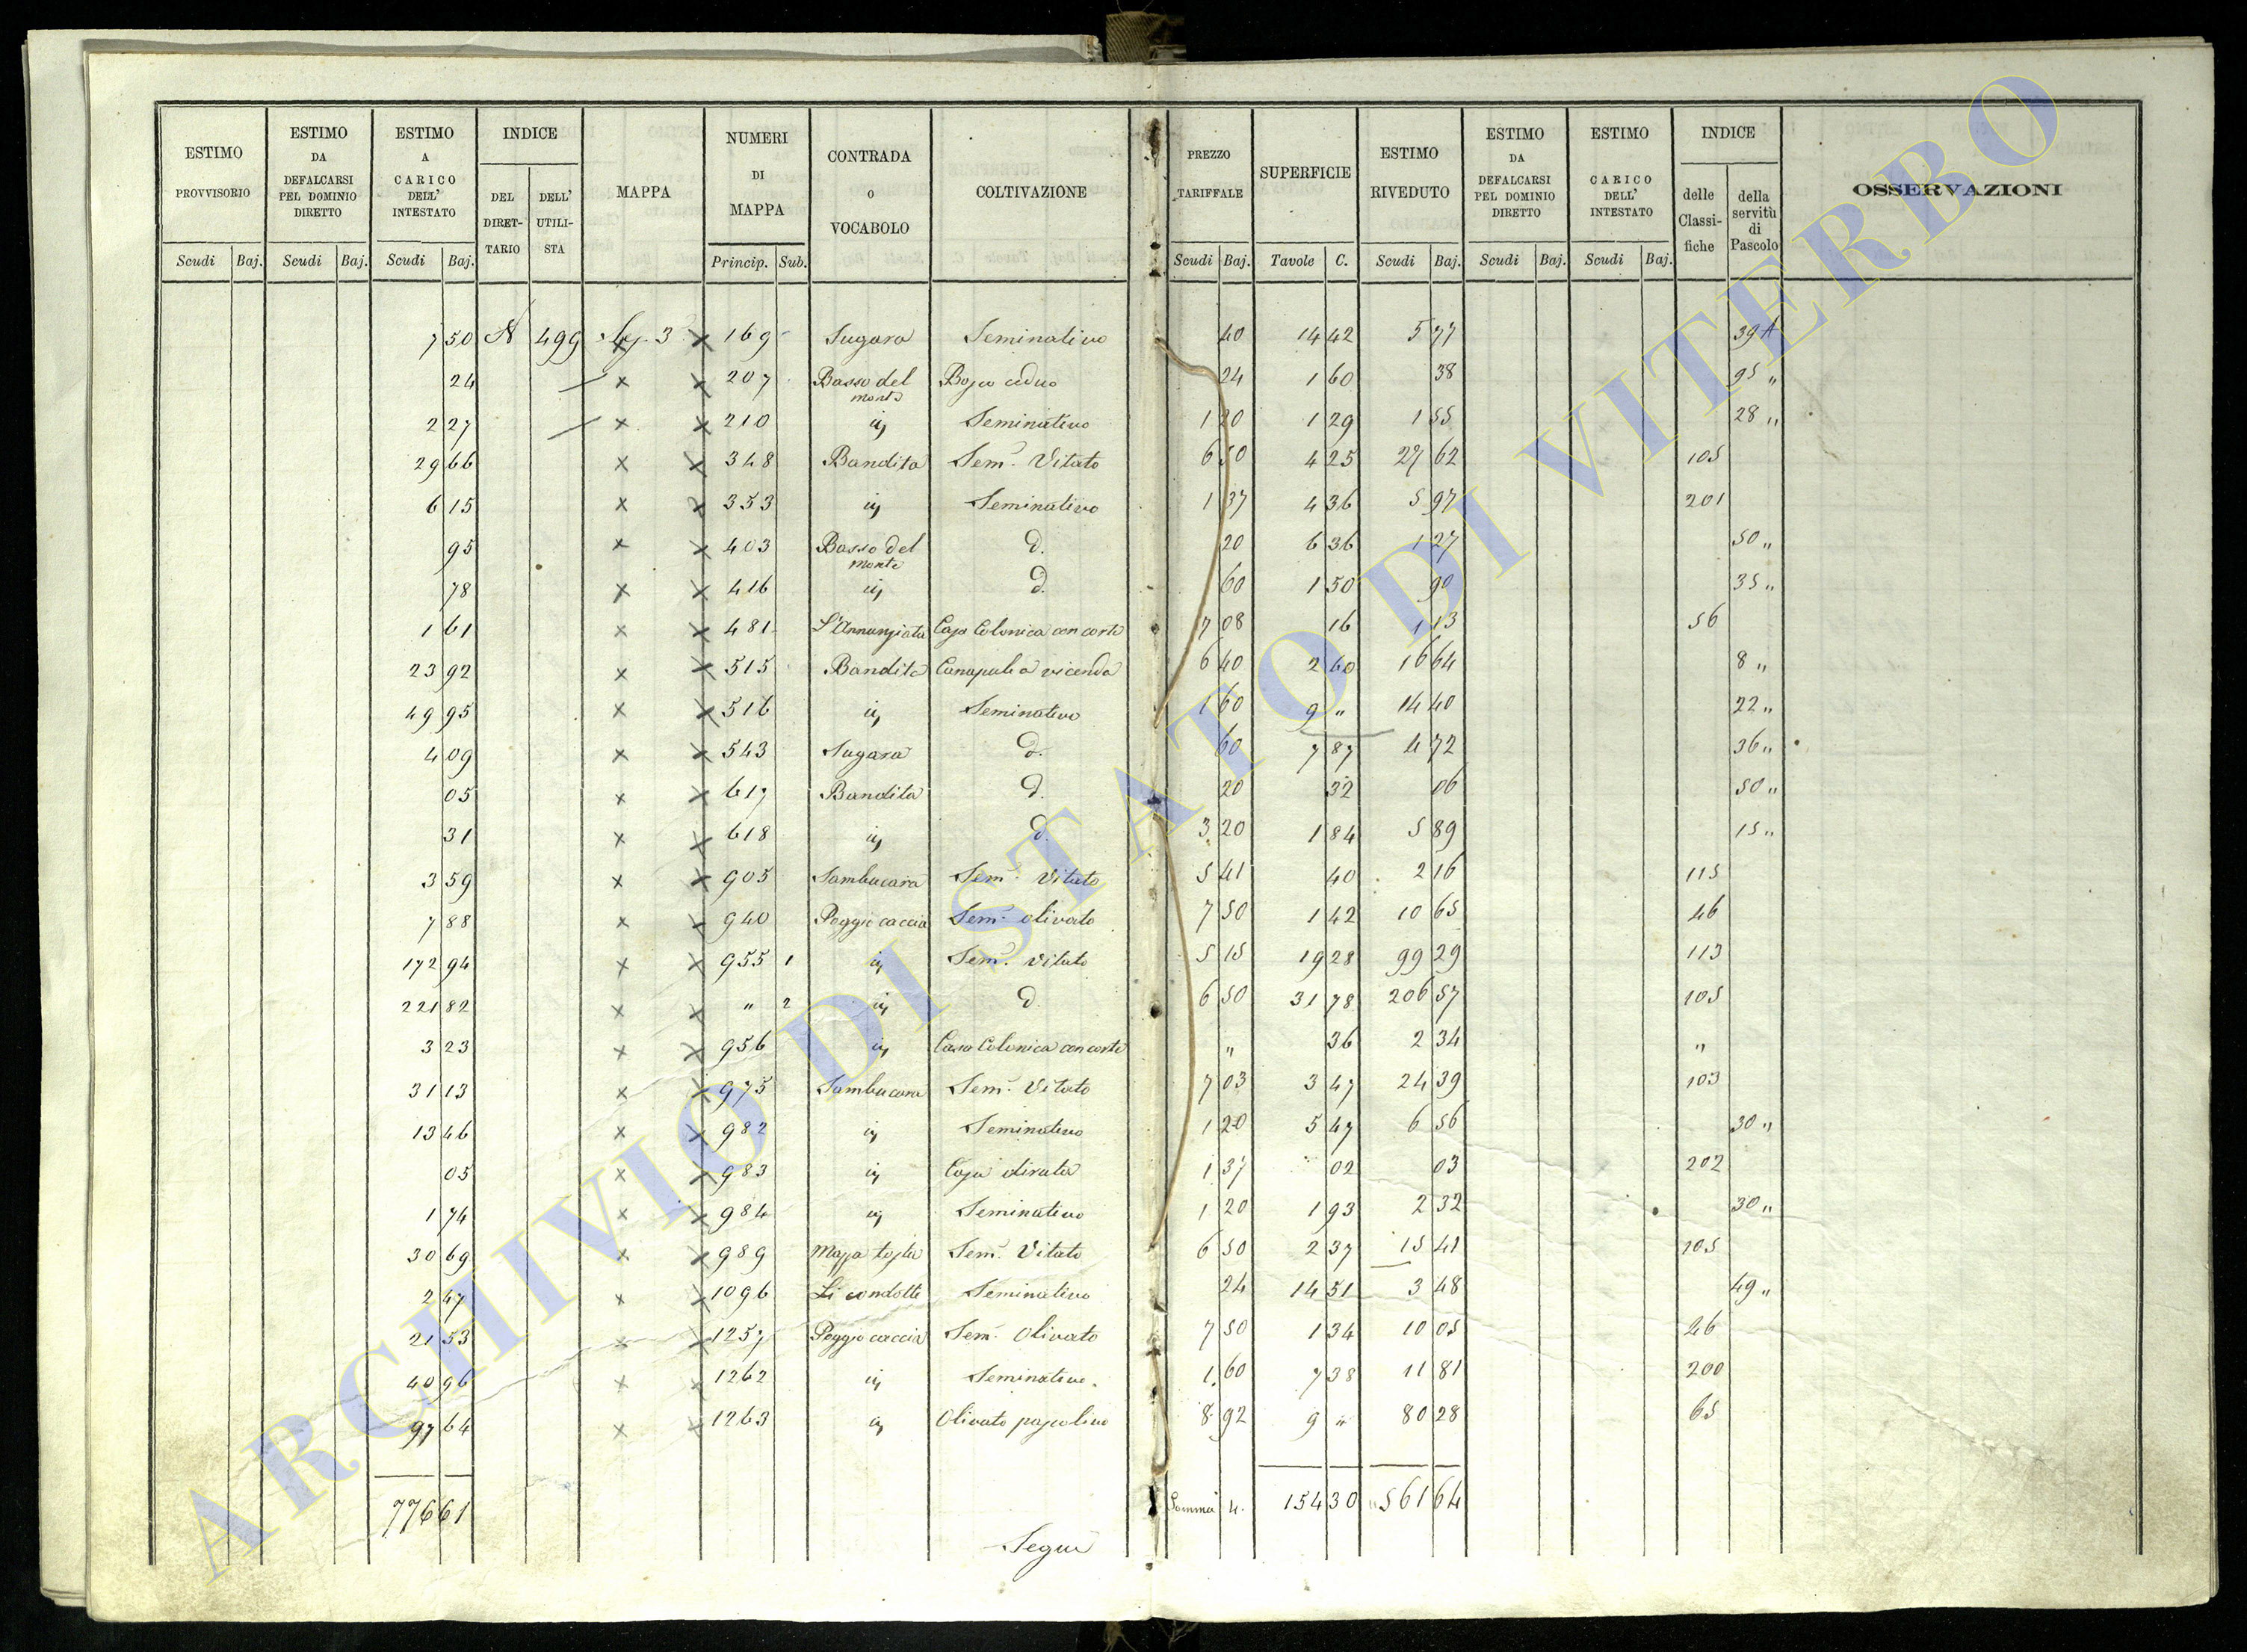 ESTIMO PROVVISORIO | ESTIMO DA DEFALCARSI PEL DOMINIO DIRETTO | ESTIMO A CARICO DELL' INTESTATO | INDICE | MAPPA | NUMERI DI MAPPA | CONTRADA o VOCABOLO | COLTIVAZIONE | PREZZO TARIFFALE | SUPERFICIE | ESTIMO RIVEDUTO | ESTIMO DA DEFALCARSI PEL DOMINIO DIRETTO | ESTIMO CARICO DELL' INTESTATO | INDICE | OSSERVAZIONI
DEL DIRETTARIO | DELL' UTILISTA | delle Classifiche | della servitù di Pascolo
Scudi | Baj. | Scudi | Baj. | Scudi | Baj. | Princip. | Sub. | Scudi | Baj. | Tavole | C. | Scudi | Baj. | Scudi | Baj. | Scudi | Baj.
7 50 | N | 499 | 3 | 169 | Sugara | Seminativo | 40 | 14 42 | 5 77 | 39 A
24 | 207 | Basso del monte | Bosco ceduo | 24 | 1 60 | 38 | 95 "
2 27 | 210 | iij | Seminativo | 1 20 | 1 29 | 1 55 | 28 "
29 66 | 348 | Bandita | Sem. Vitato | 6 50 | 4 25 | 27 62 | 105
6 15 | 353 | iij | Seminativo | 1 37 | 4 36 | 5 97 | 201
95 | 403 | Basso del monte | d. | 20 | 6 36 | 1 27 | 50 "
78 | 416 | iij | d. | 60 | 1 50 | 90 | 35 "
1 61 | 481 | L'Annunziata | Casa Colonica con corte | 7 08 | 16 | 1 13 | 56
23 92 | 515 | Bandita | Canapule a vicenda | 6 40 | 2 60 | 16 64 | 8 "
49 95 | 516 | iij | Seminativo | 1 60 | 9 " | 14 40 | 22 "
4 09 | 543 | Sugara | d. | 60 | 7 87 | 4 72 | 36 "
05 | 617 | Bandita | d. | 20 | 32 | 06 | 50 "
31 | 618 | iij | d. | 3 20 | 1 84 | 5 89 | 15 "
3 59 | 905 | Sambucara | Sem. Vitato | 5 41 | 40 | 2 16 | 115
7 88 | 940 | Poggio caccia | Sem. olivato | 7 50 | 1 42 | 10 65 | 46
172 94 | 955 1 | iij | Sem. Vitato | 5 15 | 19 28 | 99 29 | 113
221 82 | " 2 | iij | d. | 6 50 | 31 78 | 206 57 | 105
3 23 | 956 | iij | Casa Colonica con corte | " | 36 | 2 34 | "
31 13 | 975 | Sambucara | Sem. Vitato | 7 03 | 3 47 | 24 39 | 103
13 46 | 982 | iij | Seminativo | 1 20 | 5 47 | 6 56 | 30 "
05 | 983 | iij | Casa dirata | 1 37 | 02 | 03 | 202
1 74 | 984 | iij | Seminativo | 1 20 | 1 93 | 2 32 | 30 "
30 69 | 989 | Massa tosta | Sem. Vitato | 6 50 | 2 37 | 15 41 | 105
2 47 | 1096 | Li condotti | Seminativo | 24 | 14 51 | 3 48 | 49 "
21 53 | 1257 | Poggio caccia | Sem. Olivato | 7 50 | 1 34 | 10 05 | 46
40 96 | 1262 | iij | Seminativo | 1 60 | 7 38 | 11 81 | 200
97 64 | 1263 | iij | Olivato pascolivo | 8 92 | 9 " | 80 28 | 65
776 61 | Somma | 154 30 | 561 64
Segue
ARCHIVIO DI STATO DI VITERBO